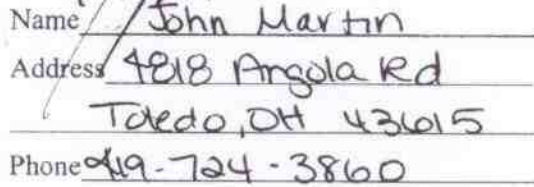 Name John Martin
Address 4818 Angola Rd
Toledo, OH 43615
Phone 419-724-3860